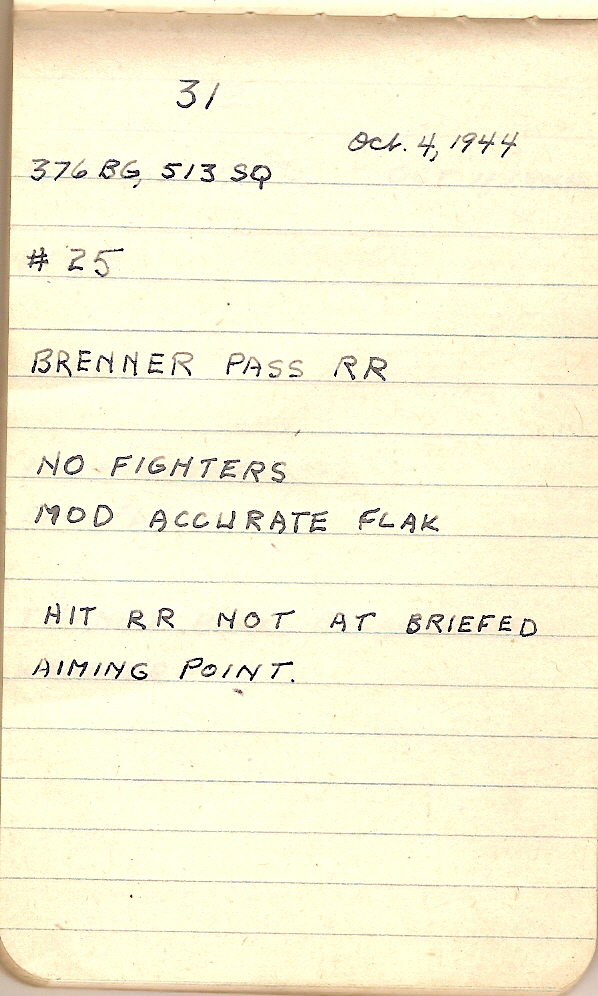 31
Oct. 4, 1944
376 BG, 513 SQ
# 25
BRENNER PASS RR
NO FIGHTERS
MOD ACCURATE FLAK
HIT RR NOT AT BRIEFED
AIMING POINT.